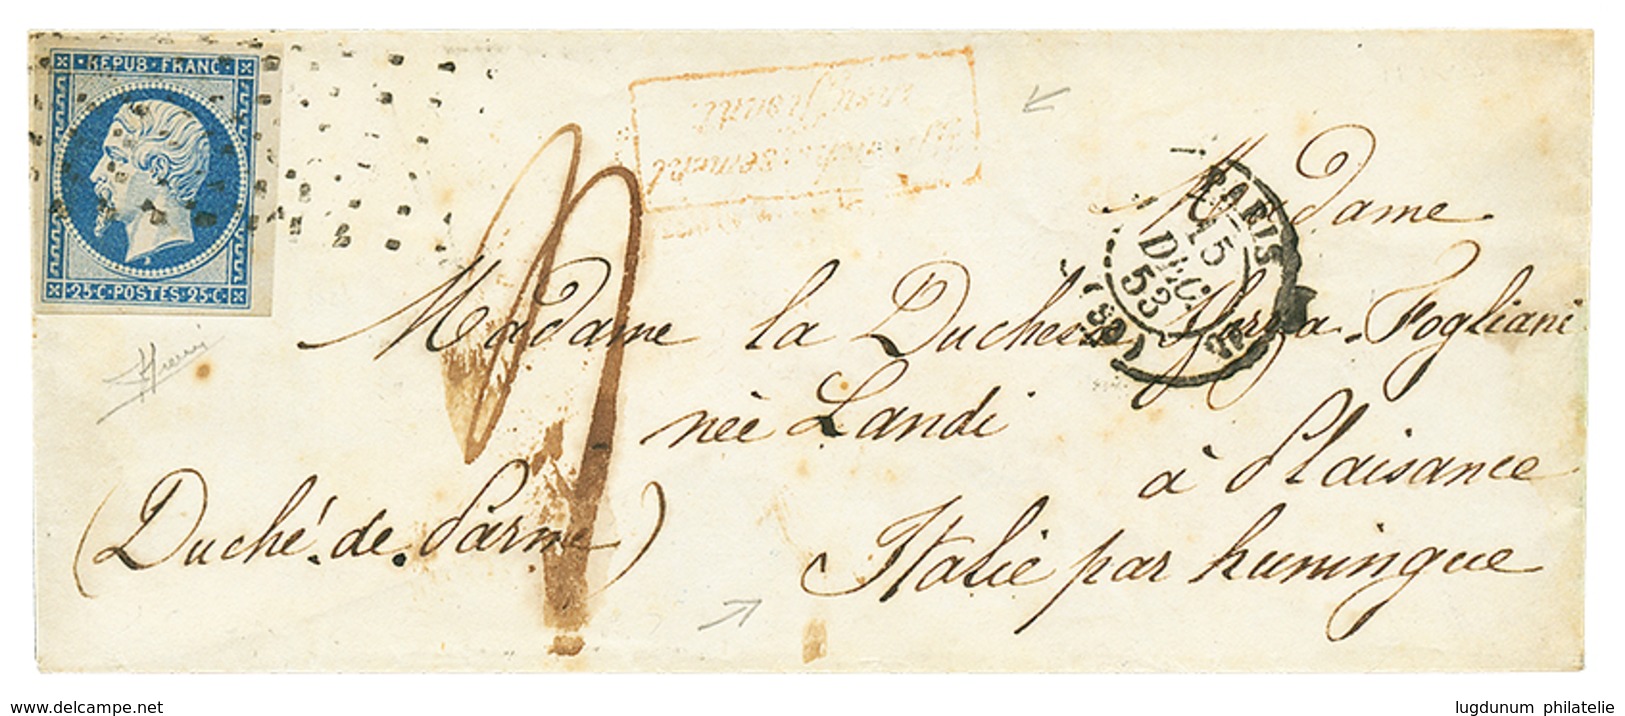 REPUB·FRANC·
25·C·POSTES·25·C·
affranchissement
insuffisant.
PARIS
15
DEC.
53
(60)
Madame
Madame la Duchesse Sforza-Fogliani
née Landi
à Plaisance
(Duché.de.Parme)
Italie par huningue
www.delcampe.net
lugdunum philatelie